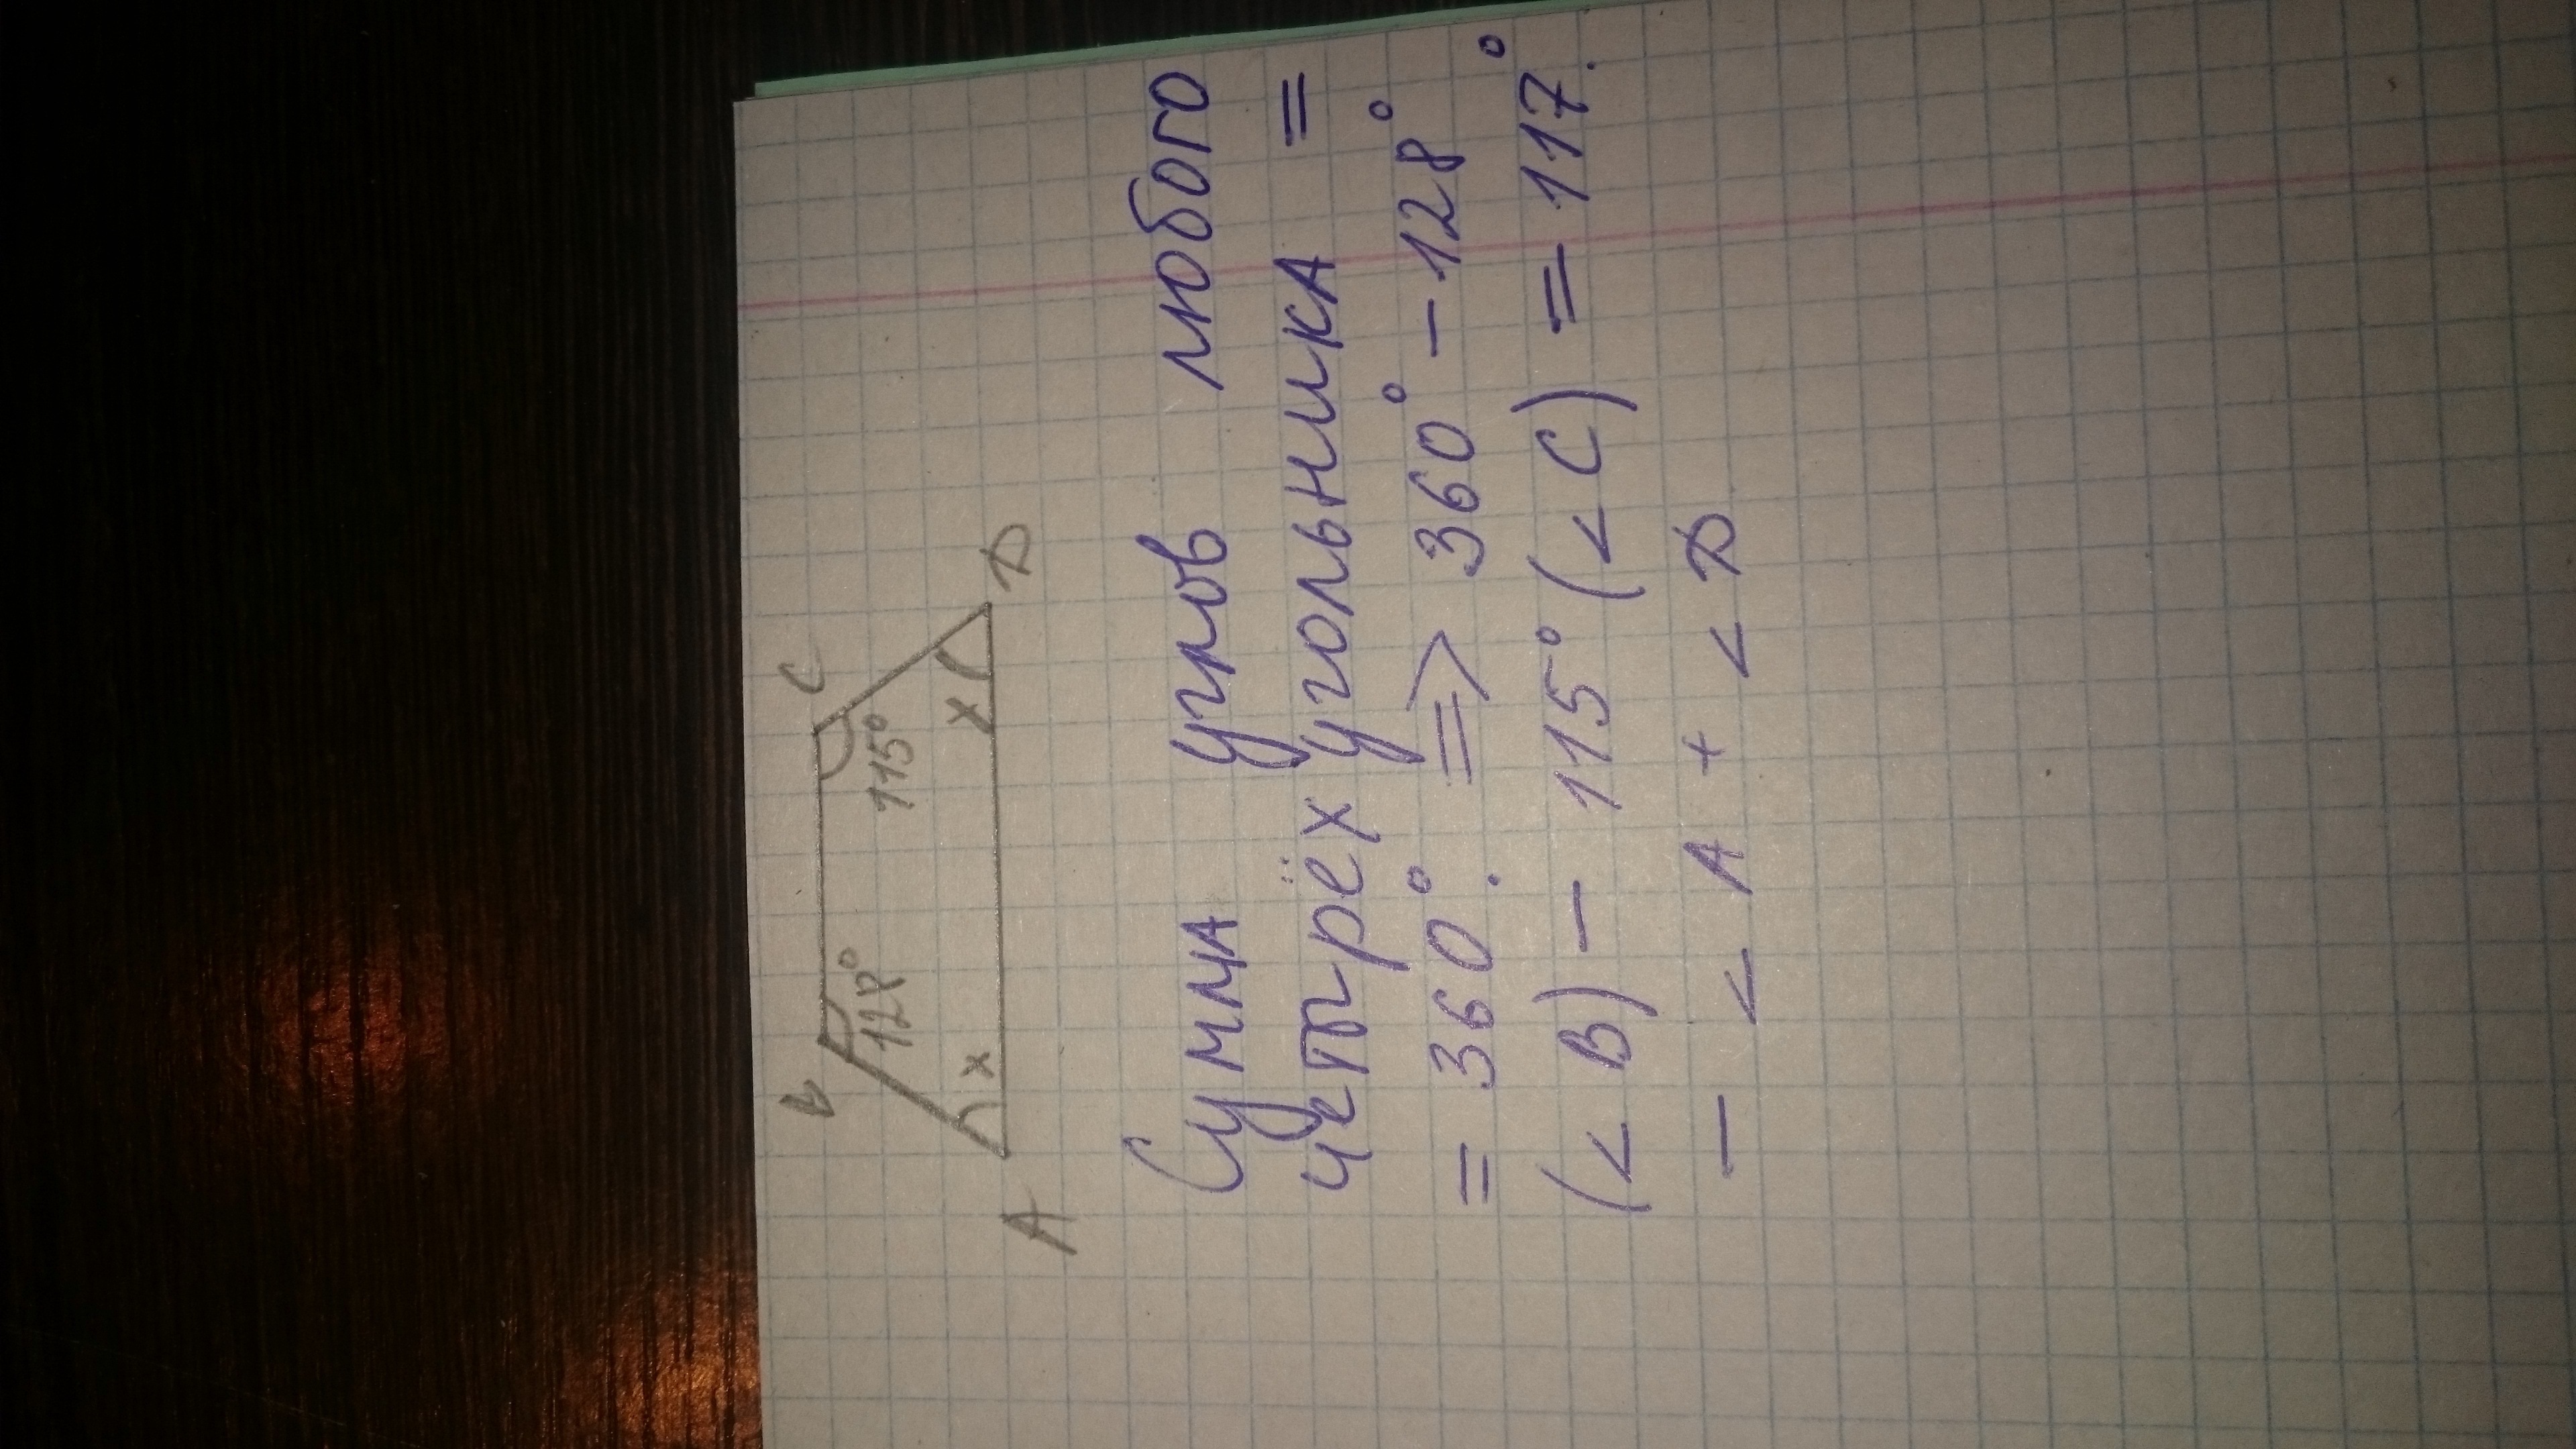 B C
128° 115°
x x
A D
Сумма углов любого
четырёх угольника =
= 360°. => 360° - 128°
(< B) - 115° (< C) = 117°.
- < A + < D